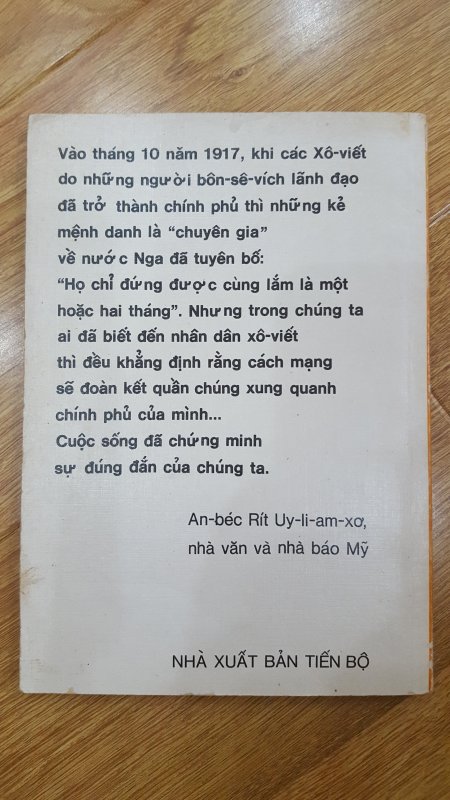 Vào tháng 10 năm 1917, khi các Xô-viết
do những người bôn-sê-vích lãnh đạo
đã trở thành chính phủ thì những kẻ
mệnh danh là “chuyên gia”
về nước Nga đã tuyên bố:
“Họ chỉ đứng được cùng lắm là một
hoặc hai tháng”. Nhưng trong chúng ta
ai đã biết đến nhân dân xô-viết
thì đều khẳng định rằng cách mạng
sẽ đoàn kết quần chúng xung quanh
chính phủ của mình...
Cuộc sống đã chứng minh
sự đúng đắn của chúng ta.
An-béc Rít Uy-li-am-xơ,
nhà văn và nhà báo Mỹ
NHÀ XUẤT BẢN TIẾN BỘ